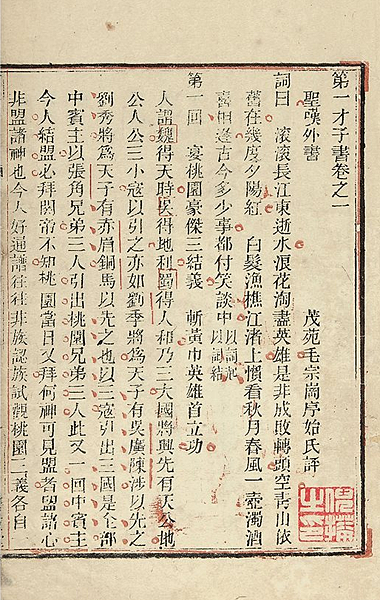 第一才子書卷之一
聖嘆外書　茂苑毛宗崗序始氏評
詞曰　滾滾長江東逝水浪花淘盡英雄是非成敗轉頭空青山依
舊在幾度夕陽紅　白髮漁樵江渚上慣看秋月春風一壺濁酒
喜相逢古今多少事都付笑談中以詞起以詞結
第一回　宴桃園豪傑三結義　斬黃巾英雄首立功
人謂魏得天時吳得地利蜀得人和乃三大國將興先有天公地
公人公三小寇以引之亦如劉季將為天子有吳廣陳涉以先之
劉秀將為天子有赤眉銅馬以先之也以三寇引出三國是全部
中賓主以張角兄弟三人引出桃園兄弟三人此又一回中賓主
今人結盟必拜關帝不知桃園當日又拜何神可見盟者盟諸心
非盟諸神也今人好通譜往往非族認族試觀桃園三義各自一